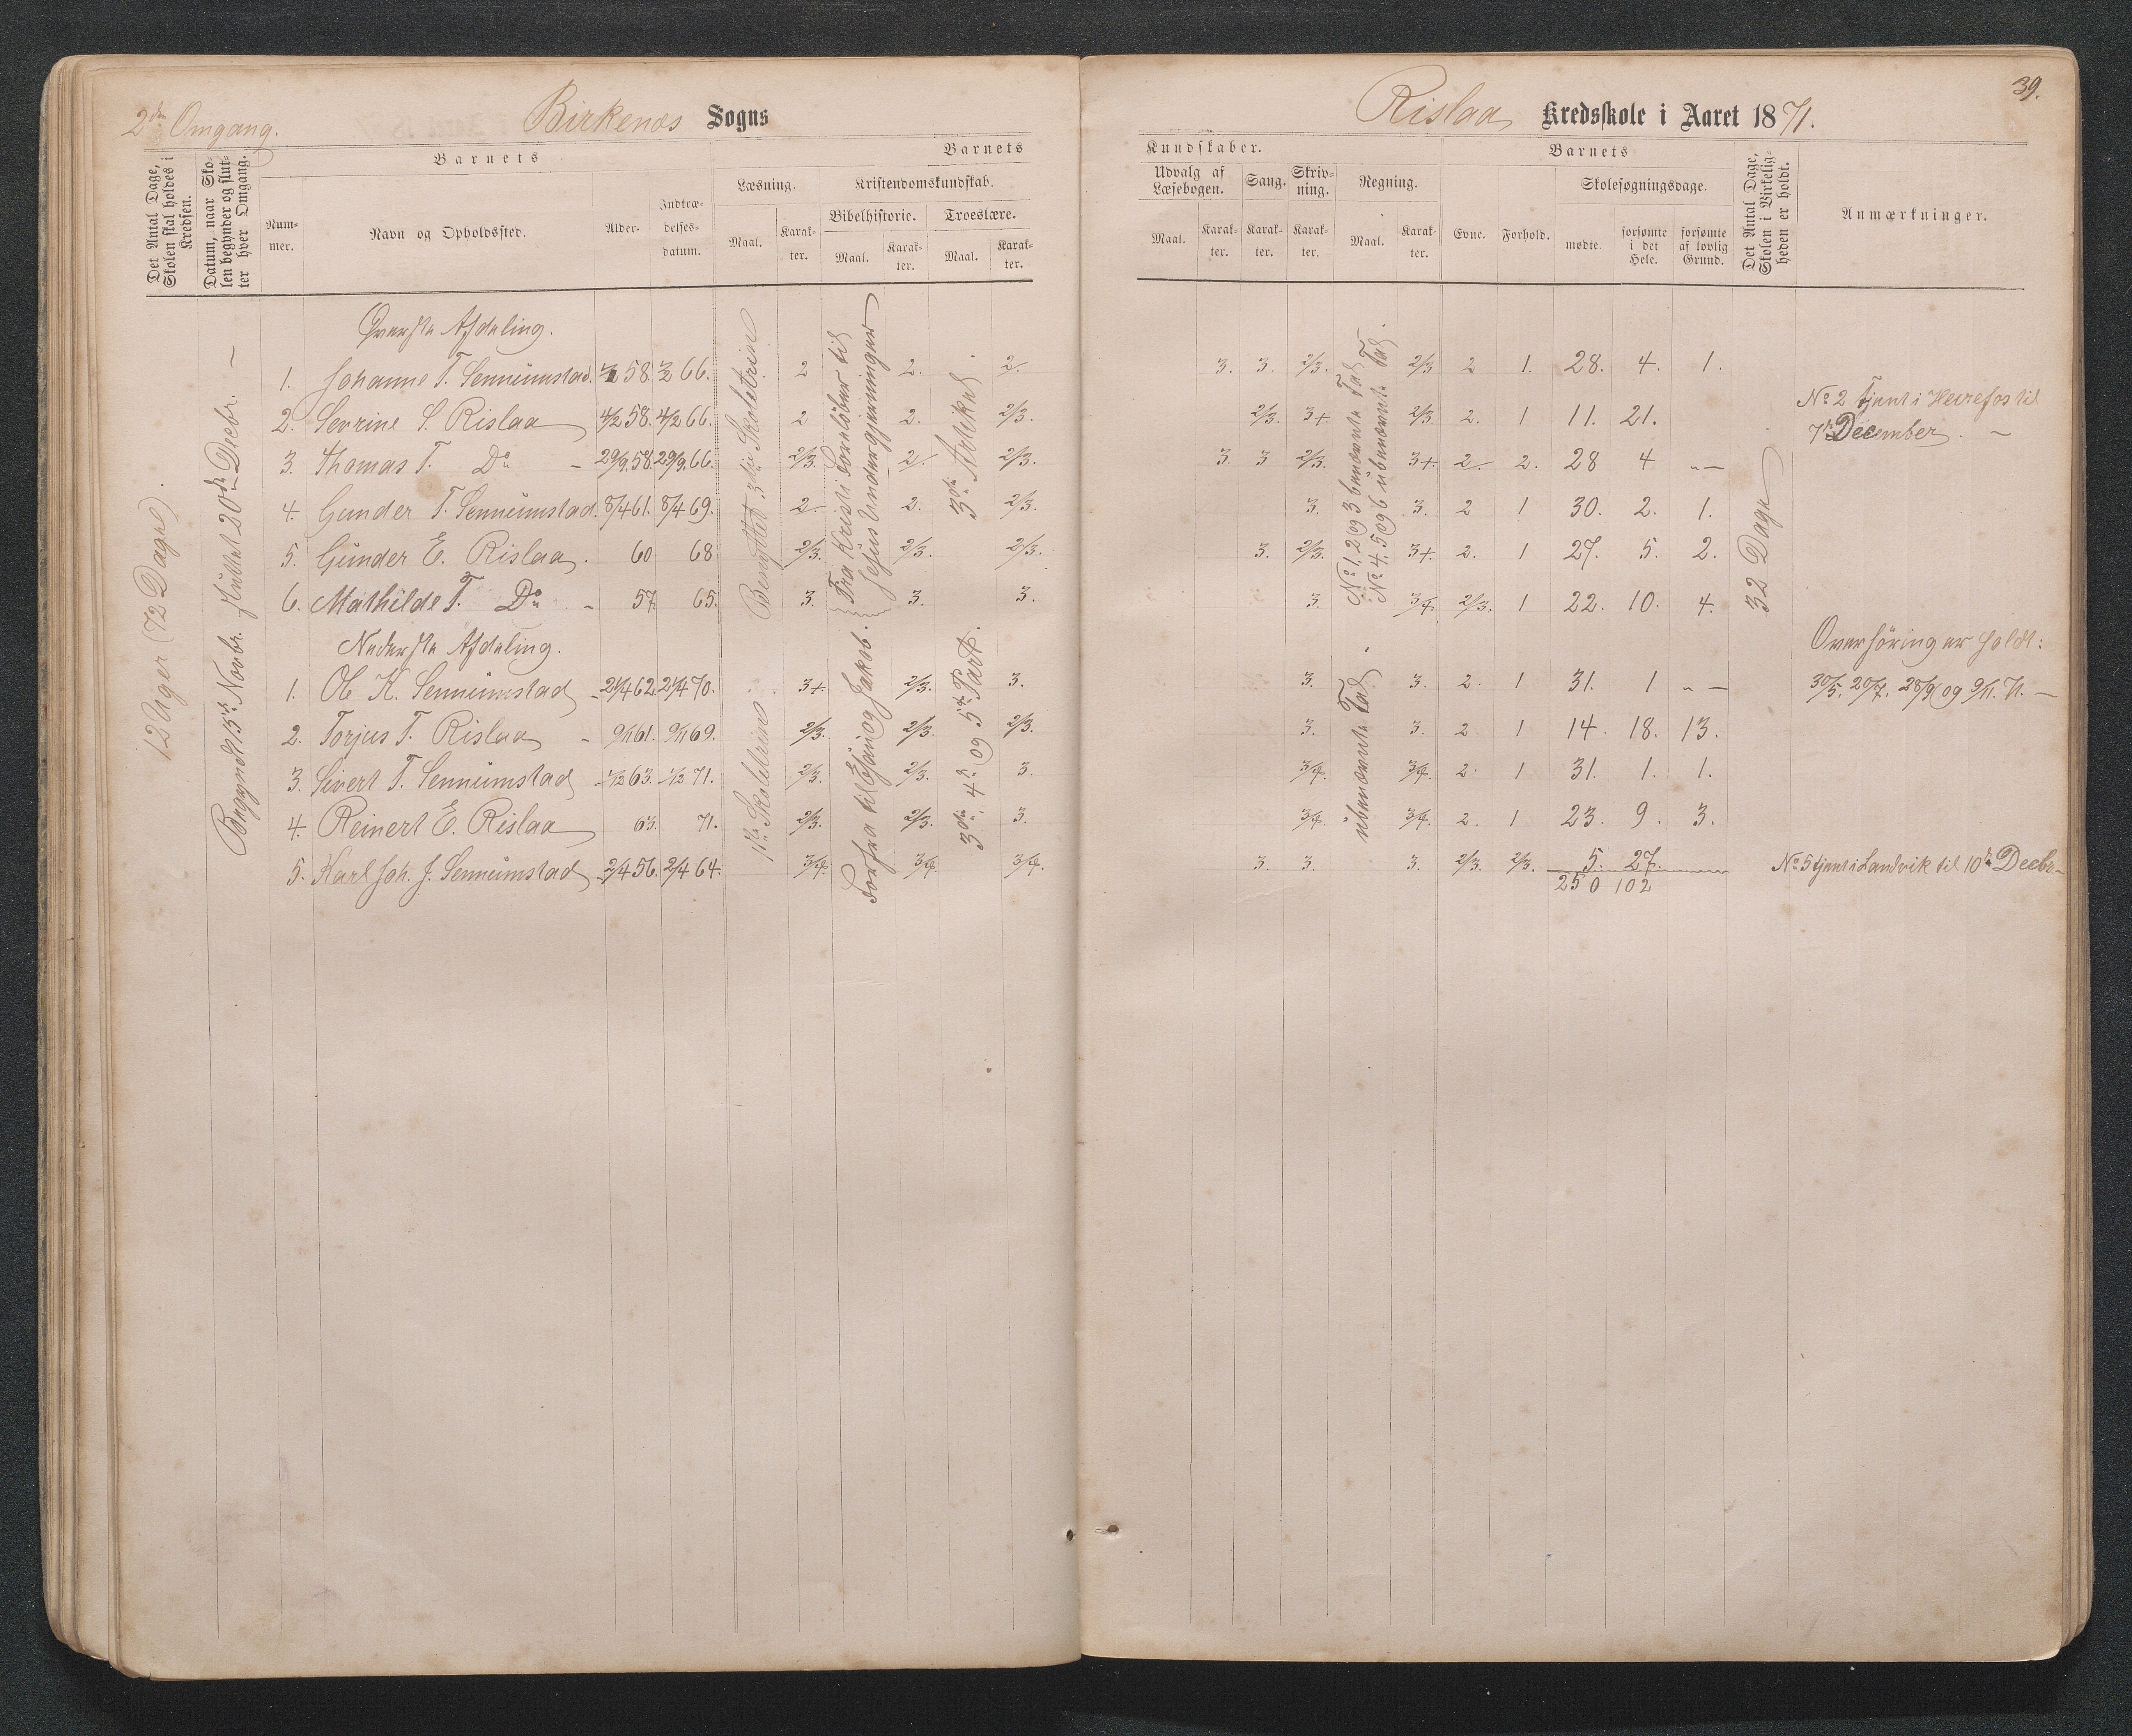 2den Omgang. Birkenæs Sogns Rislaa Kredsskole i Aaret 1871. 39.
Det Antal Dage, Skolen skal holdes i Kredsen.
Datum, naar Skolen begynder og slutter hver Omgang.
Barnets
Nummer.
Navn og Opholdssted.
Alder.
Indtrædelsesdatum.
Barnets Kundskaber.
Læsning.
Maal.
Karakter.
Kristendomskundskab.
Bibelhistorie.
Maal.
Karakter.
Troeslære.
Maal.
Karakter.
Udvalg af Læsebogen.
Maal.
Karakter.
Sang.
Karakter.
Skrivning.
Karakter.
Regning.
Maal.
Karakter.
Barnets
Evne.
Forhold.
Skolesøgningsdage.
mødte.
forsømte i det Hele.
forsømte af lovlig Grund.
Det Antal Dage, Skolen i Virkeligheden er holdt.
Anmærkninger.
12 Uger (72 Dage).
Begyndt 13de Novbr. sluttet 20de Decbr. —
Øverste Afdeling.
1. Johanne T. Sennumstad. 58. 1/2 66. 2 2. 2. 3. 3. 2/3. 2/3 2 1. 28. 4. 1.
2. Sevrine S. Rislaa 4/2 58. 4/2 66. 2 2. 2/3. 2/3. 3+. 2/3. 2. 1 11. 21.
3. Thomas T. Do — 29/9. 58. 29/9. 66. 2/3. 2. 2/3. 3. 3 2/3. 3+. 2. 2. 28 4 „ —
4. Gunder T. Sennumstad. 8/4 61. 8/4 69. 2. 2. 2/3. 3. 3. 2 1 30. 2. 1.
5. Gunder E. Rislaa. 60 68 2/3. 2/3. 2/3. 3. 2/3. 3+. 2. 1 27. 5. 2.
6. Mathilde T. Do — 57. 65. 3. 3. 3. 3. 3/4. 2/3. 1 22. 10. 4.
Benyttet 3die Skoletrin
Fra Kristi Fornløber til
Jesus Undergjerninger
3die Artikel
No 1. 2 og 3 benævnte Tal
No 4. 5 og 6 ubenævnte Tal.
32 Dage
No 2 tjent i Heirefos til
7de December. —
Nederste Afdeling.
1. Ol. K. Sennumstad 24/4 62. 24/4 70. 3+. 2/3. 3. 3. 3. 2. 1 31. 1 „ —
2. Torjus T. Rislaa — 9/11 61. 9/11 69. 2/3. 2/3. 2/3. 3. 3. 2 1 14. 18. 13.
3. Sivert T. Sennumstad 1/12 63. 1/12 71. 2/3. 2/3. 3. 3/4. 3/4. 2. 1 31. 1. 1.
4. Reinert E. Rislaa 63. 71. 2/3. 2/3. 3. 3/4. 3/4. 2. 1 23. 9. 3.
5. Karl Joh. J. Sennumstad 2/4 56. 2/4 64. 3/4. 3/4. 3/4. 3. 3. 3. 2/3. 2/3. 5. 27.
250 102
1ste Skoletrin
Forfra til Esau og Jakob.
3die, 4de og 5te Part.
ubenævnte Tal.
Overhøring er holdt:
30/5. 20/7. 28/9 og 9/11. 71. —
No 5 tjent i Landvik til 10de Decbr. —